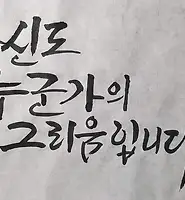 신도
누군가의
그리움입니다